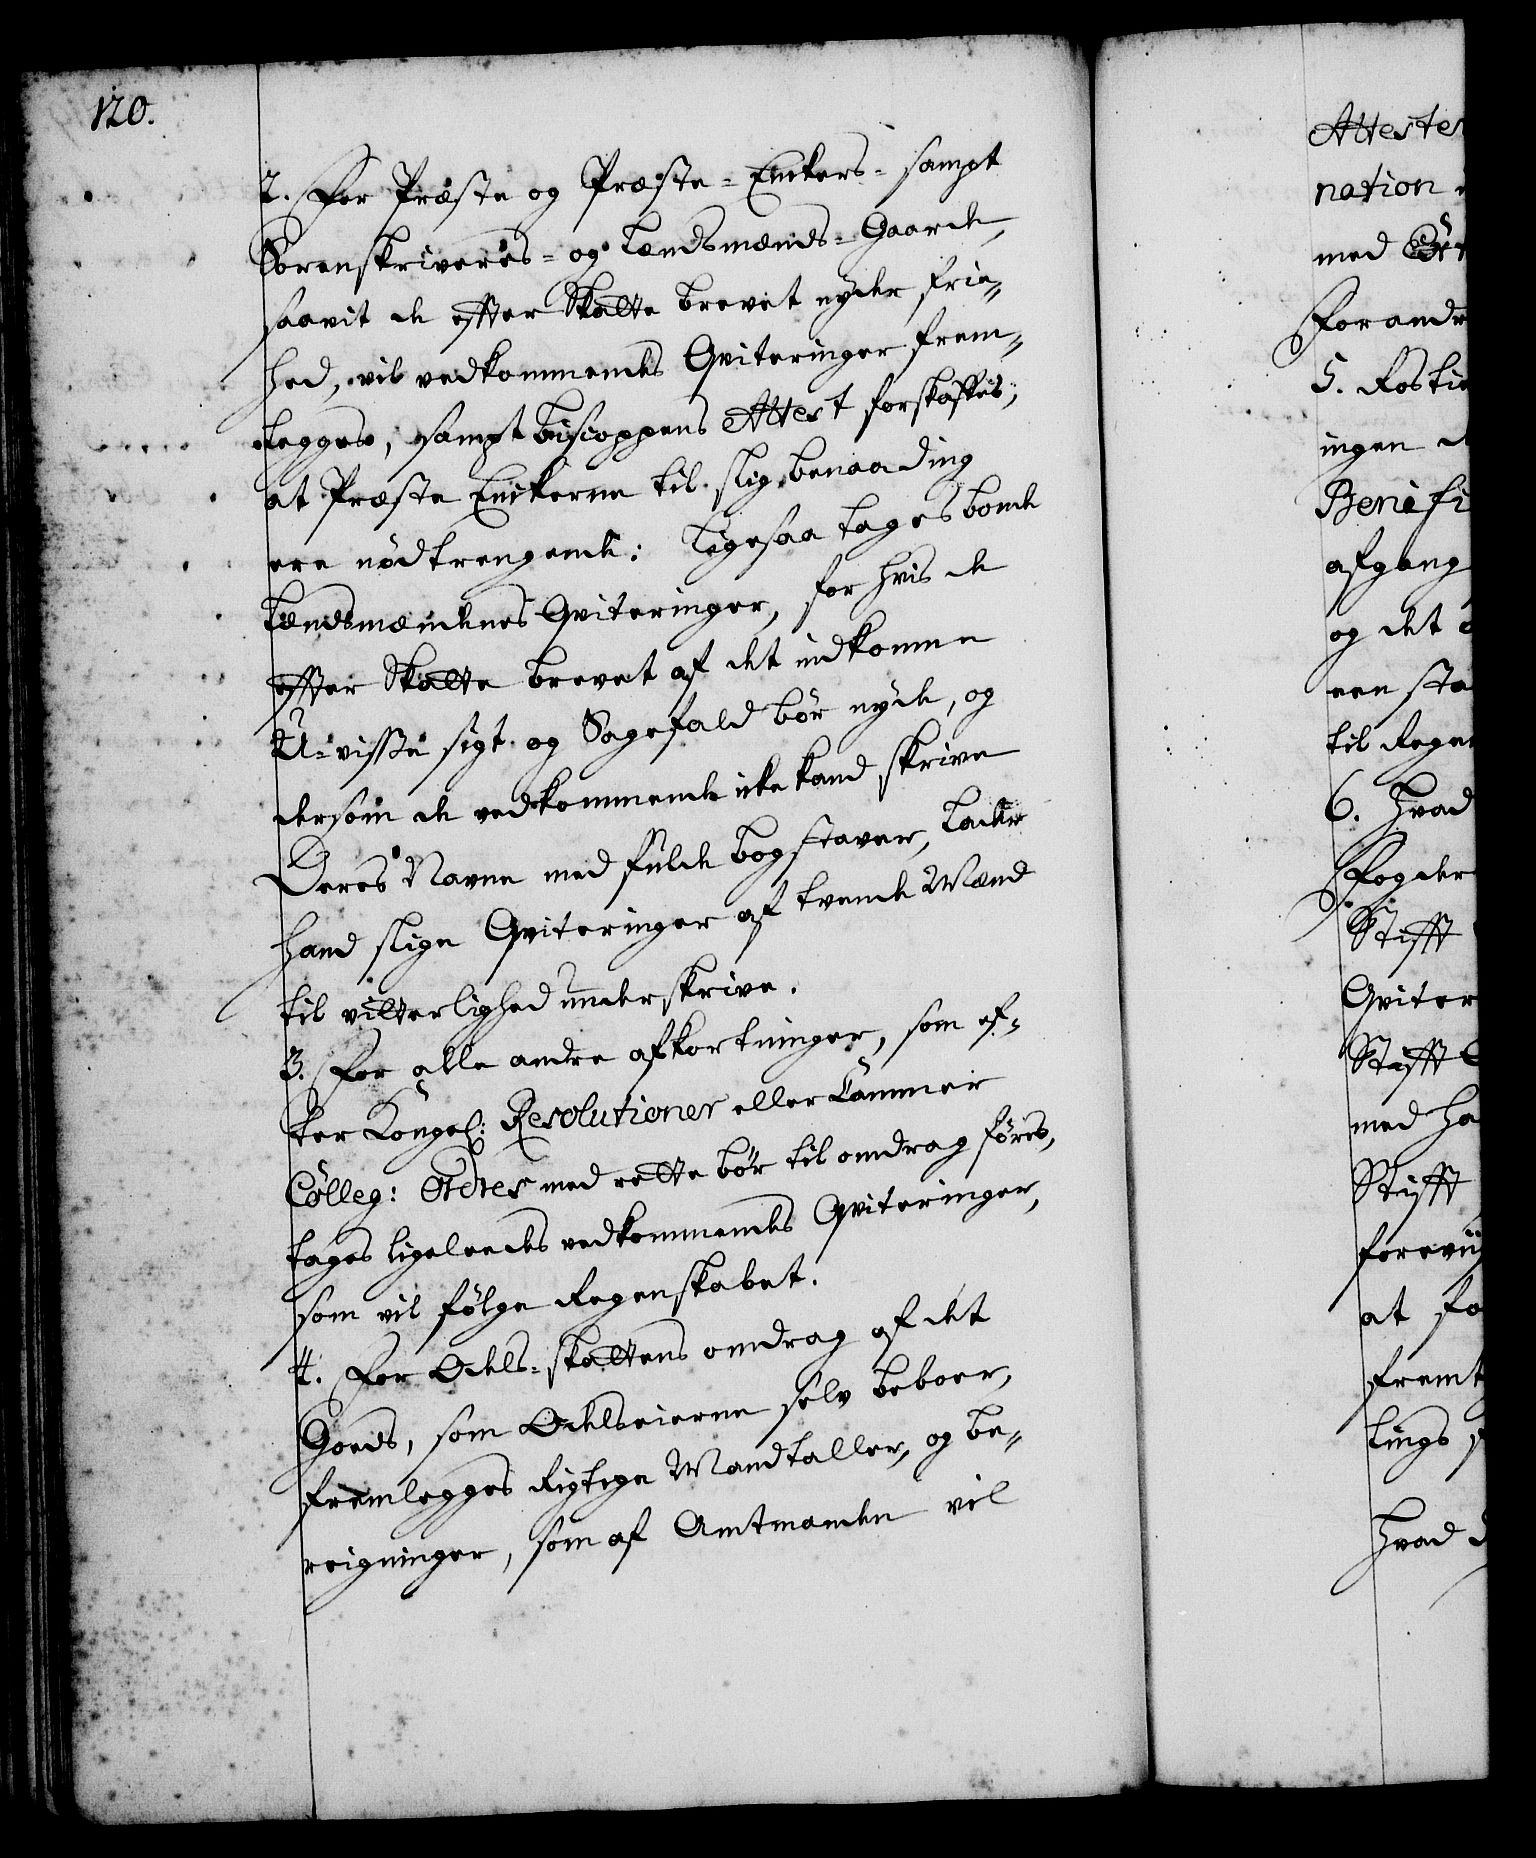 120.
2. For Præste og Præste-Enkers- sampt
Sorenskriveres- og Lændsmænds-Gaarde,
saavit de effter Skatte brevet nyder frie-
hed, vil vedkommendes Qviteringer frem-
legges, sampt Biscoppens Attest forskaffes,
at Præste Enckerne til slig benaading
ere nödtrengende: Ligesaa tages bonde
Lændsmændenes Qviteringer, for hvis de
effter Skatte brevet af det indkomne
U-visse sigt og Sagefald bör nyde, og
dersom de vedkommende icke kand skrive
Deres Navne med fulde bogstaver, lader
hand slige Qviteringer af tvende Mænd
til vitterlighed underskrive.
3. For alle andre afkortninger, som ef-
ter Kongel: Resolutioner eller Cammer
Colleg: Ordres med rette bör til omdrag föres,
tages ligeleedes vedkommendes Qviteringer,
som vil fölge Regenskabet.
4. For Odels-skattens omdrag af det
Goeds, som Odelseierne selv beboer,
fremlegges Rigtige Mandtaller, og be-
reigninger, som af Amtmanden vil
Attester
nation
med
For andr
5. Rostie
ingen
Benefi
afgang
og det
een sta
til Regen
6. Hvad
Fogder
Stifft
Qviter
Stifft
med ha
Stifft
foreviis
at fo
fremt
tings
Hvad